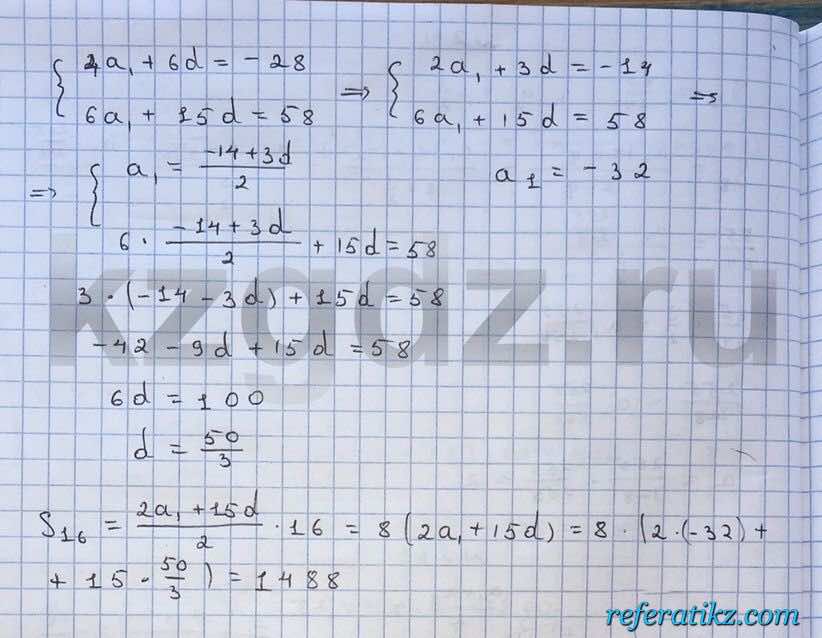 { 4a₁ + 6d = -28
6a₁ + 15d = 58
=> { 2a₁ + 3d = -14
6a₁ + 15d = 58 =>
=> { a₁ = (-14+3d)/2
6 · (-14+3d)/2 + 15d = 58
a₁ = -32
3 · (-14 - 3d) + 15d = 58
-42 - 9d + 15d = 58
6d = 100
d = 50/3
S₁₆ = (2a₁ + 15d)/2 · 16 = 8 (2a₁ + 15d) = 8 · (2·(-32) +
+ 15 · 50/3) = 1488
kzgdz.ru
referatikz.com